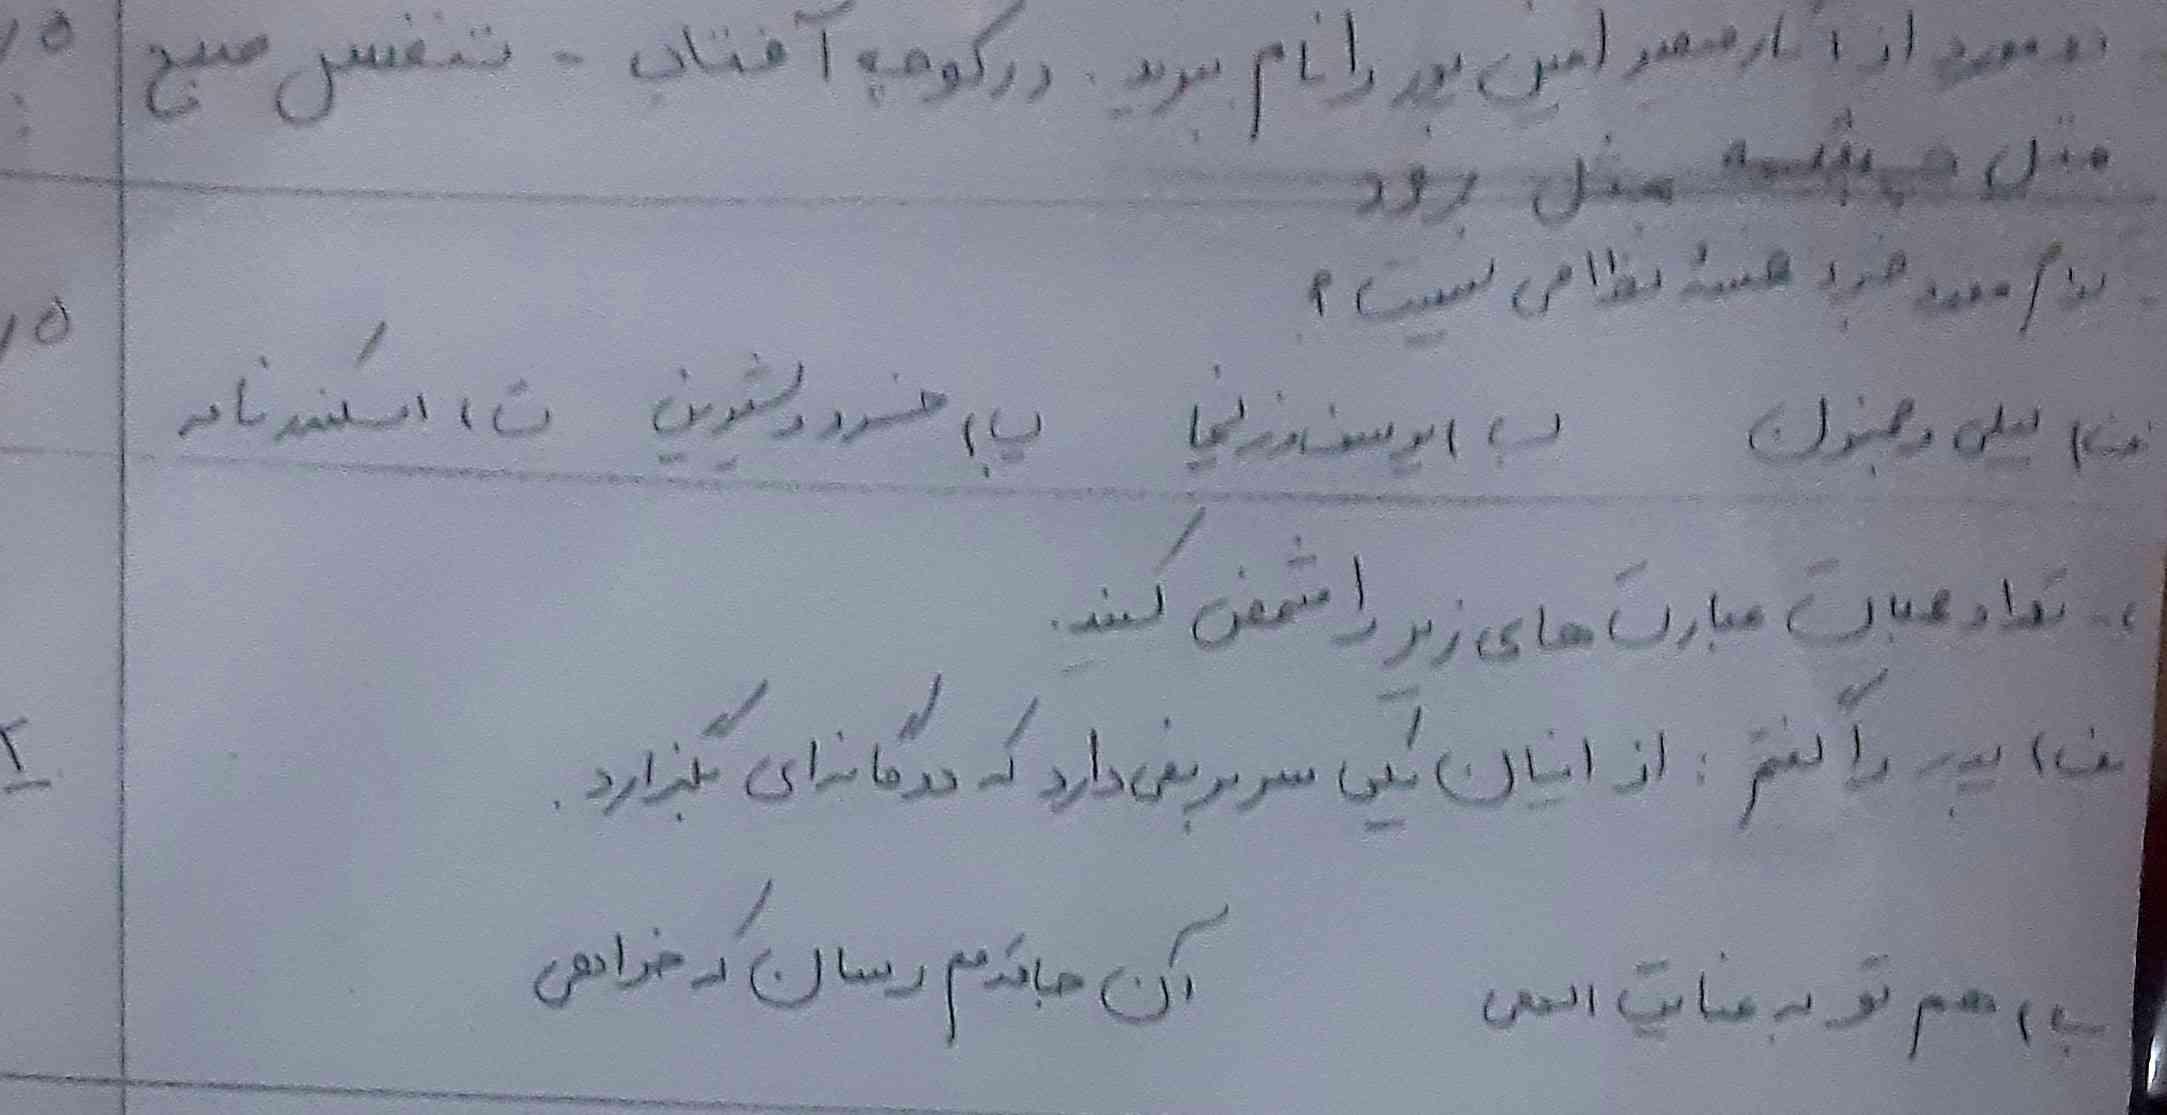 دو مورد از آثار قیصر امین پور را نام ببرید. در کوچه آفتاب - تنفس صبح ۵/
مثل چشمه مثل رود
کدام مورد جزء خمسهٔ نظامی نیست؟ ۵/
الف) لیلی و مجنون ب) یوسف و زلیخا پ) خسرو و شیرین ت) اسکندر نامه
- تعداد جملات عبارت های زیر را مشخص کنید.
الف) پدر را گفتم: از اینان یکی سر بر نمی دارد که دوگانه ای بگزارد. ۲
ب) هم تو به عنایت الهی آن جا قدمم رسان که خواهی